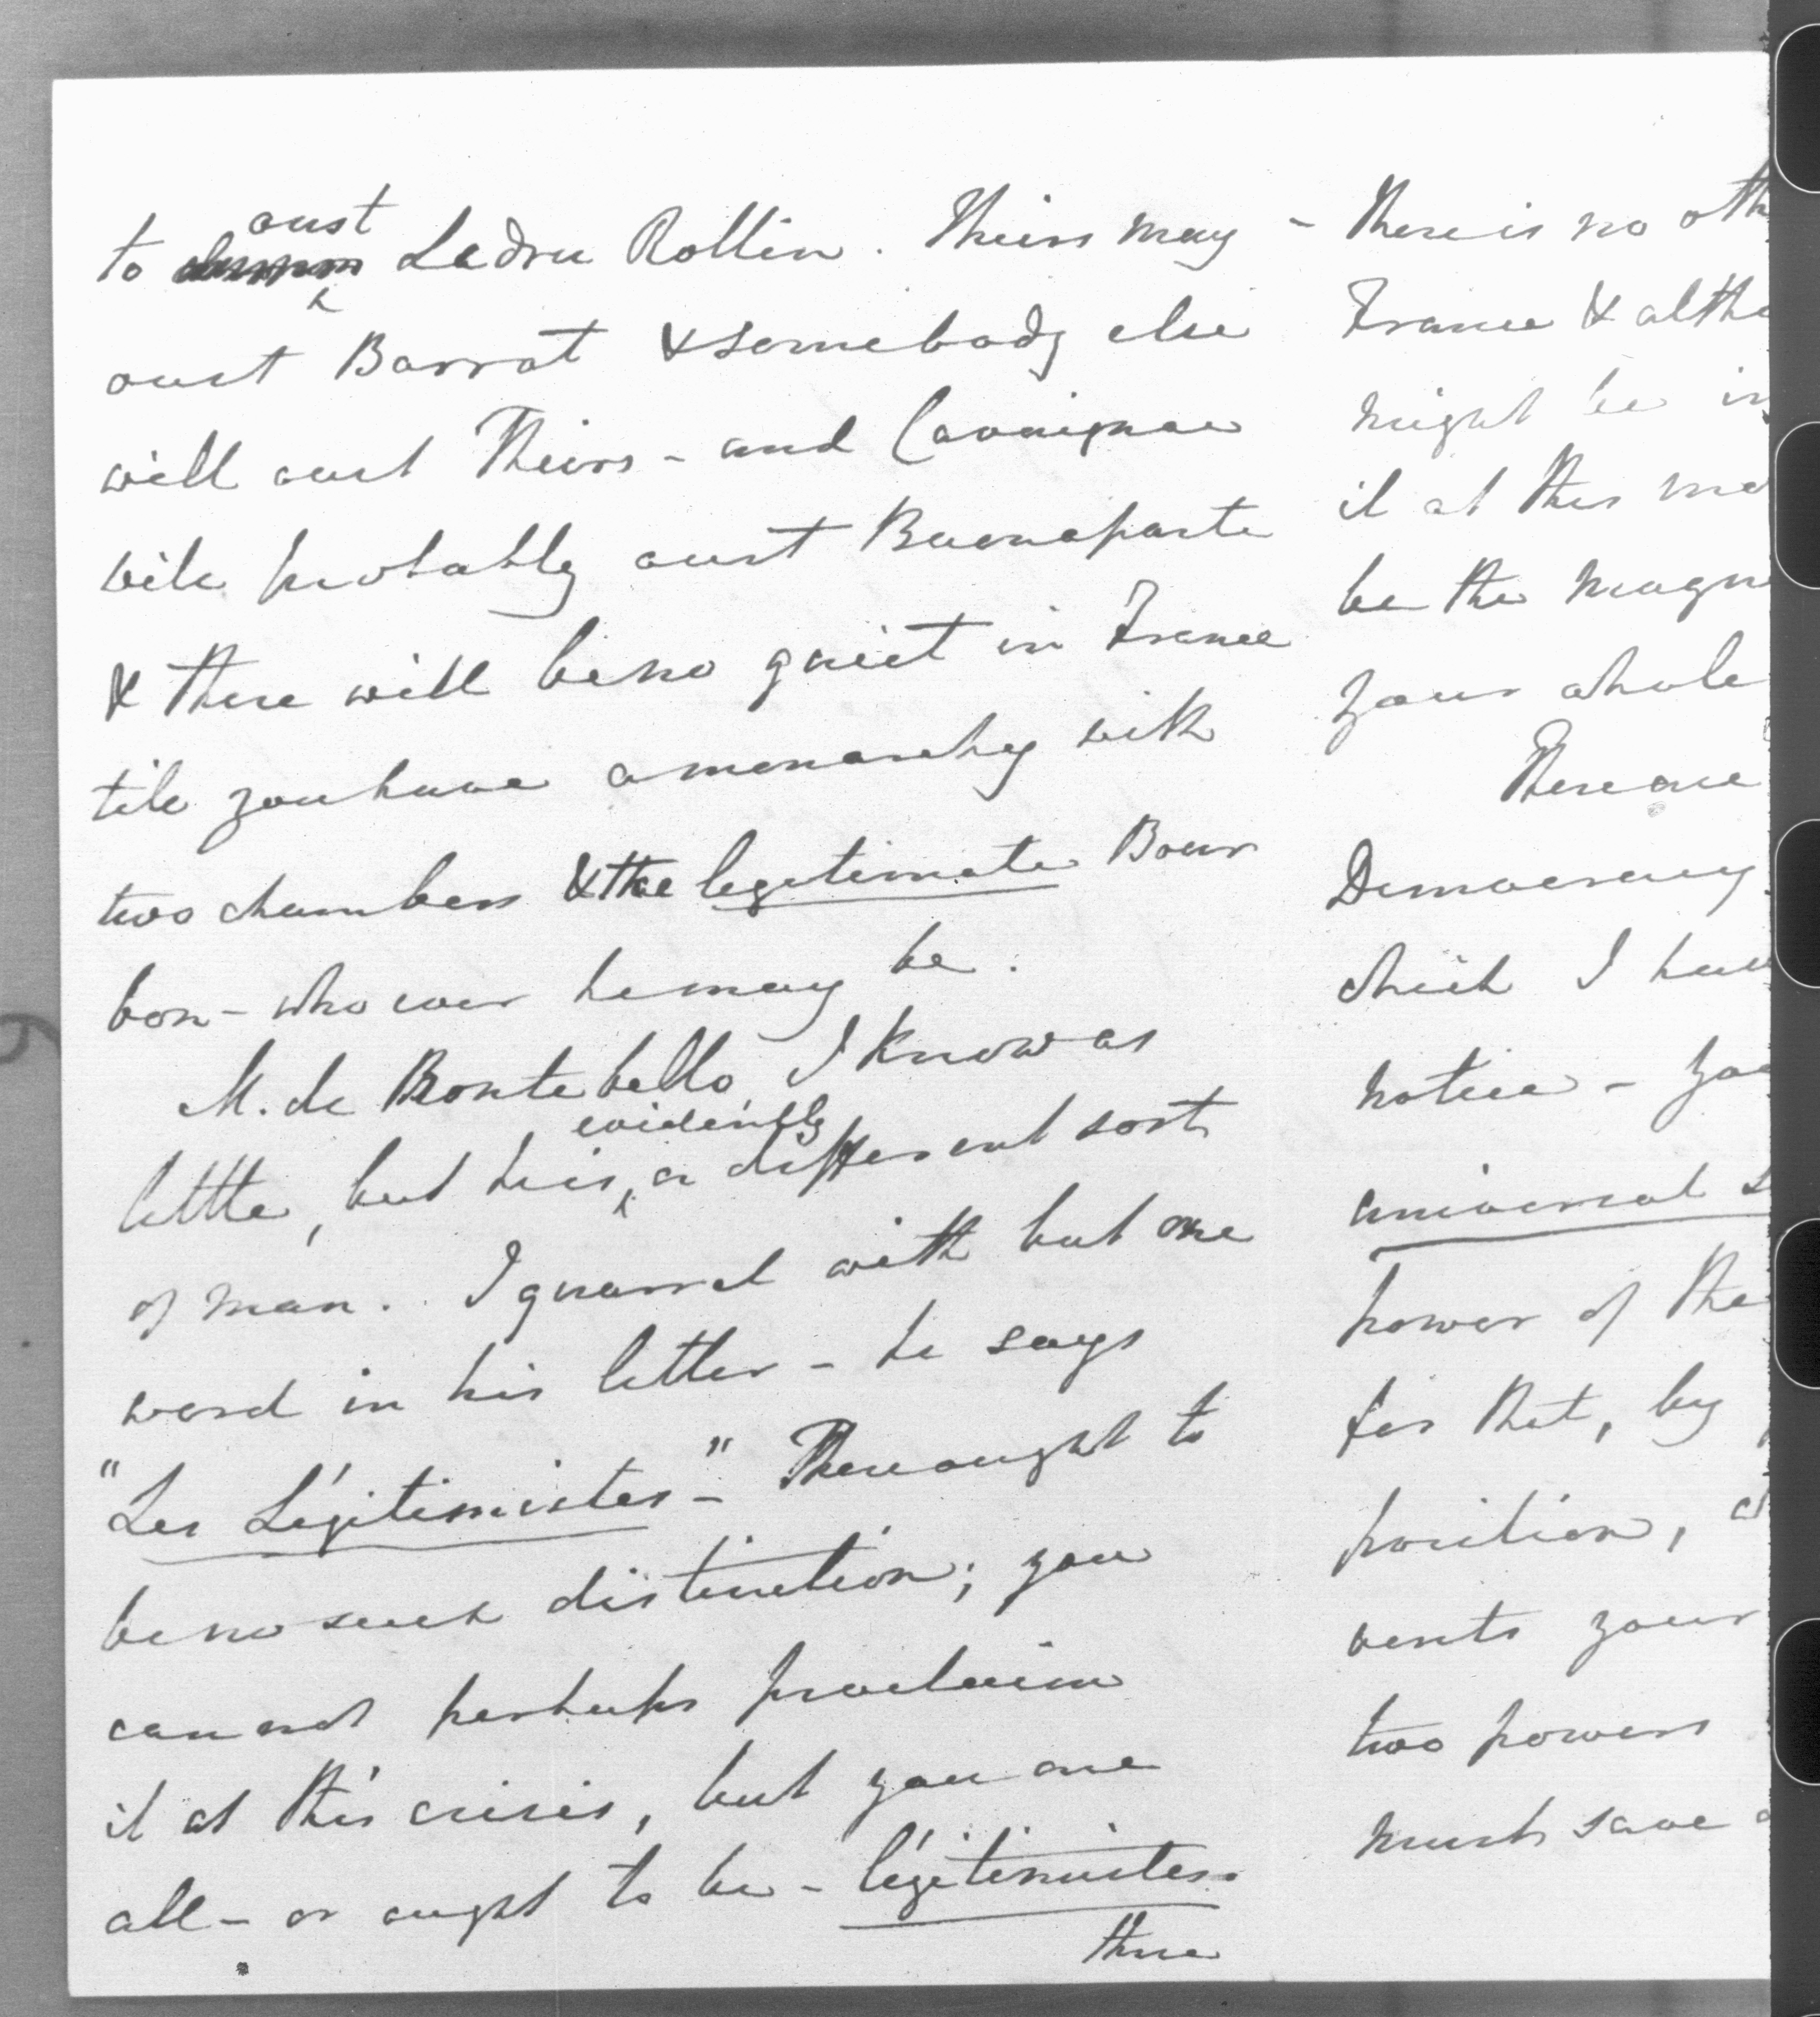 to oust Ledru Rollin. Thiers may
oust Barrot & somebody else
will oust Thiers - and Cavaignac
will probably oust Buonaparte
& there will be no quiet in France
till you have a monarchy with
two chambers & the legitimate Bour
bon - who ever he may be.
M. de Montebello I know as
little, but he is evidently a different sort
of man. I quarrel with but one
word in his letter - he says
"Les Légitimistes" - There ought to
be no such distinction; you
cannot perhaps proclaim
it at this crisis, but you are
all - or ought to be - légitimistes.
there
- There is no oth
France & altho
might be in
it at this mo
be the magn
your whole
There are
Democracy
which I have
notice - you
universal s
power of the
for that, by
position, a
vents your
two powers
must save